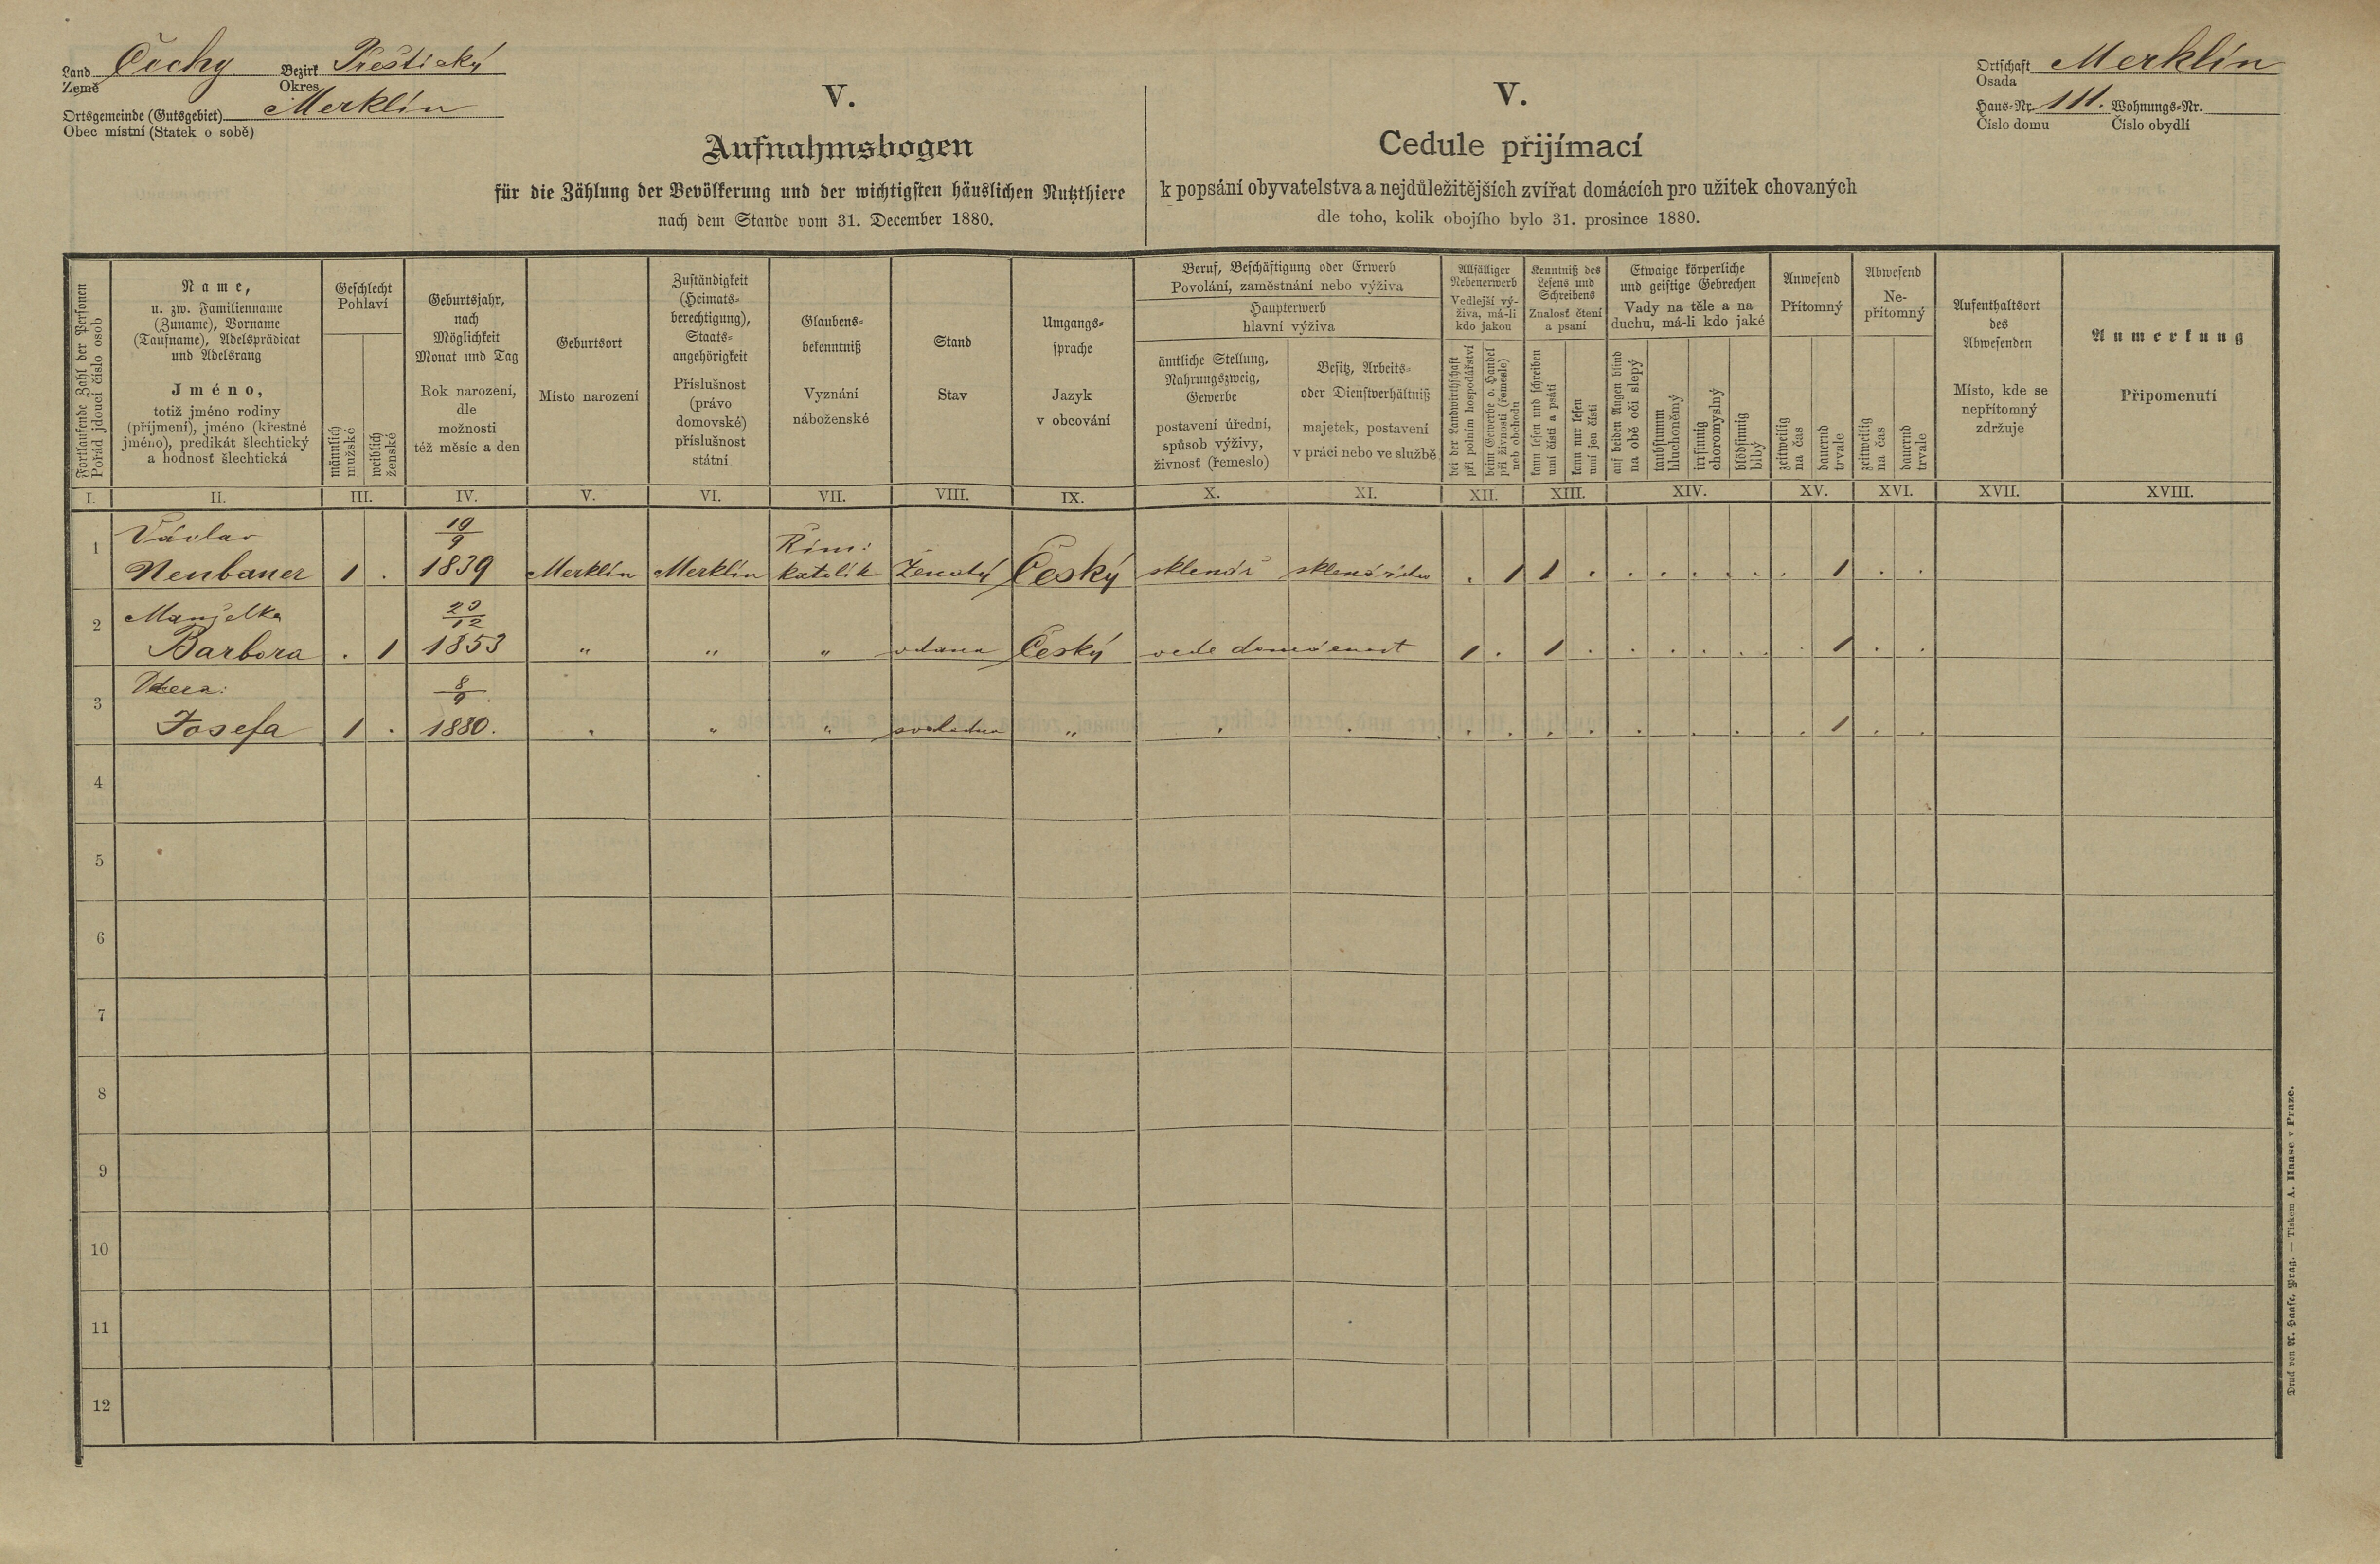 Land Čechy Bezirk Přeštický
Země Okres
Ortsgemeinde (Gutsgebiet) Merklín
Obec místní (Statek o sobě)
Ortschaft Merklín
Osada
Haus-Nr. 111. Wohnungs-Nr.
Číslo domu Číslo obydlí
V.
Aufnahmsbogen
für die Zählung der Bevölkerung und der wichtigsten häuslichen Nutzthiere
nach dem Stande vom 31. December 1880.
V.
Cedule přijímací
k popsání obyvatelstva a nejdůležitějších zvířat domácích pro užitek chovaných
dle toho, kolik obojího bylo 31. prosince 1880.
Fortlaufende Zahl der Personen
Pořád jdoucí číslo osob
Name,
u. zw. Familienname
(Zuname), Vorname
(Taufname), Adelsprädicat
und Adelsrang
Jméno,
totiž jméno rodiny
(příjmení), jméno (křestné
jméno), predikát šlechtický
a hodnosť šlechtická
Geschlecht
Pohlaví
männlich
mužské
weiblich
ženské
Geburtsjahr,
nach
Möglichkeit
Monat und Tag
Rok narození,
dle
možnosti
též měsíc a den
Geburtsort
Místo narození
Zuständigkeit
(Heimats-
berechtigung),
Staats-
angehörigkeit
Příslušnost
(právo
domovské)
příslušnost
státní
Glaubens-
bekenntniß
Vyznání
náboženské
Stand
Stav
Umgangs-
sprache
Jazyk
v obcování
Beruf, Beschäftigung oder Erwerb
Povolání, zaměstnání nebo výživa
Haupterwerb
hlavní výživa
ämtliche Stellung,
Nahrungszweig,
Gewerbe
postavení úřední,
spůsob výživy,
živnosť (řemeslo)
Besitz, Arbeits-
oder Dienstverhältniß
majetek, postavení
v práci nebo ve službě
Allfälliger
Nebenerwerb
Vedlejší vý-
živa, má-li
kdo jakou
bei der Landwirthschaft
při polním hospodářství
beim Gewerbe o. Handel
při živnosti (řemesle)
neb obchodu
Kenntniß des
Lesens und
Schreibens
Znalosť čtení
a psaní
kann lesen und schreiben
umí čísti a psáti
kann nur lesen
umí jen čísti
Etwaige körperliche
und geistige Gebrechen
Vady na těle a na
duchu, má-li kdo jaké
auf beiden Augen blind
na obě oči slepý
taubstumm
hluchoněmý
irrsinnig
choromyslný
blödsinnig
blbý
Anwesend
Přítomný
zeitweilig
na čas
dauernd
trvale
Abwesend
Ne-
přítomný
zeitweilig
na čas
dauernd
trvale
Aufenthaltsort
des
Abwesenden
Místo, kde se
nepřítomný
zdržuje
Anmerkung
Připomenutí
I. II. III. IV. V. VI. VII. VIII. IX. X. XI. XII. XIII. XIV. XV. XVI. XVII. XVIII.
Václav 19/9 Řím:
1 Neubauer 1 . 1839 Merklín Merklín katolík Ženatý Český sklenář sklenářství . 1 1 . . . . . . 1 . .
Manželka 20/12
2 Barbora . 1 1853 " " " vdaná Český vede domácnost 1 . 1 . . . . . . 1 . .
Dcera: 8/9
3 Josefa 1 . 1880. " " " svobodna " . . . . . . . . . . . 1 . .
4
5
6
7
8
9
10
11
12
Druck von A. Haase, Prag. — Tiskem A. Haase v Praze.